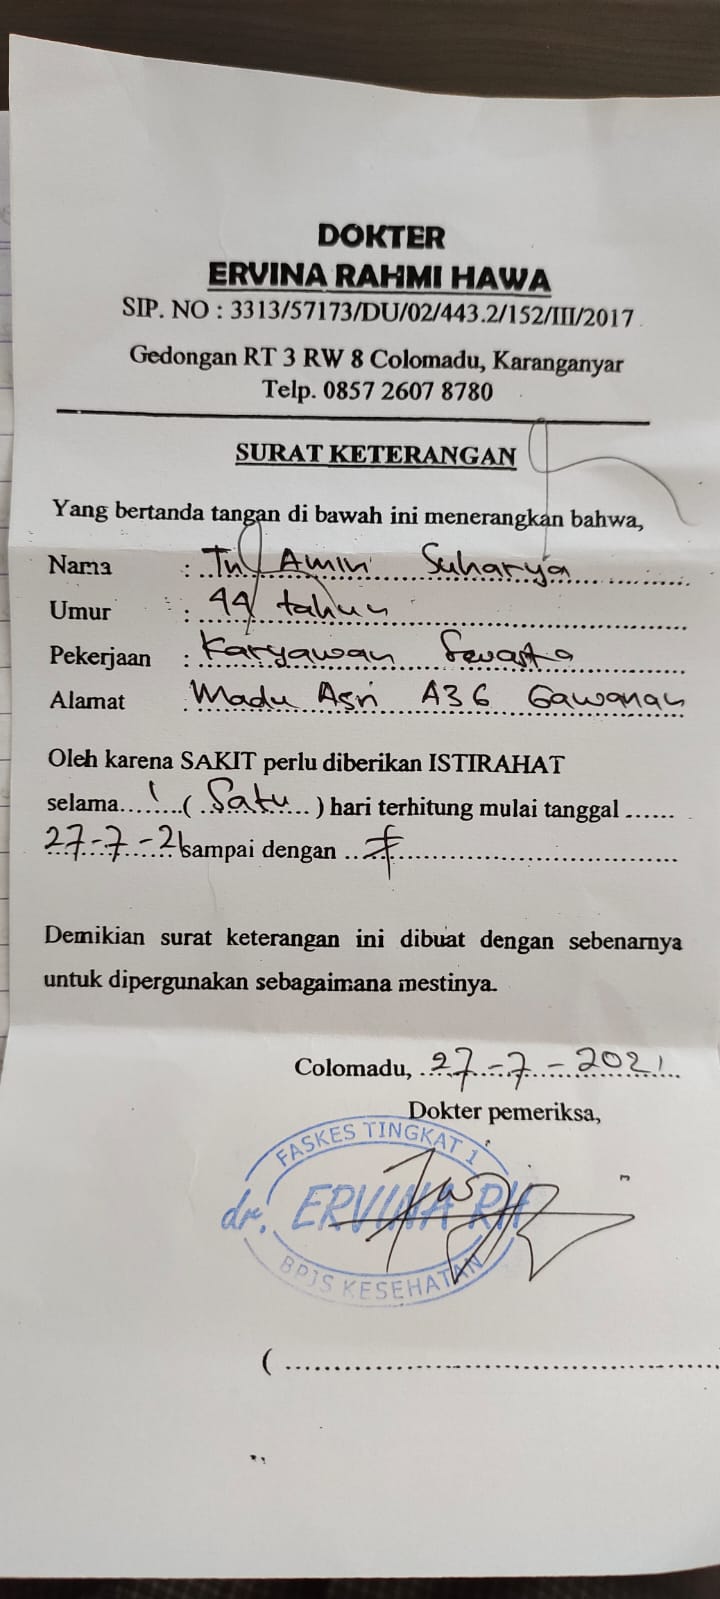 DOKTER
ERVINA RAHMI HAWA
SIP. NO : 3313/57173/DU/02/443.2/152/III/2017
Gedongan RT 3 RW 8 Colomadu, Karanganyar
Telp. 0857 2607 8780
SURAT KETERANGAN
Yang bertanda tangan di bawah ini menerangkan bahwa,
Nama : Tn Amin Suharya
Umur : 44 tahun
Pekerjaan : Karyawan Swasta
Alamat : Madu Asri A36 Gawanan
Oleh karena SAKIT perlu diberikan ISTIRAHAT
selama...1...( Satu ) hari terhitung mulai tanggal ......
27-7-21 sampai dengan ..............
Demikian surat keterangan ini dibuat dengan sebenarnya
untuk dipergunakan sebagaimana mestinya.
Colomadu, 27-7-2021
Dokter pemeriksa,
FASKES TINGKAT 1
dr. ERVINA RH
BPJS KESEHATAN
( ..............